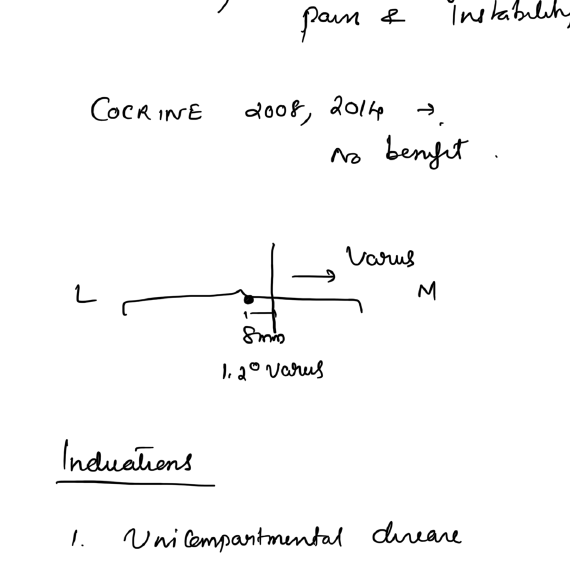 pain & Instability
COCRINE 2008, 2014 →
No benefit.
→ Varus
L M
8mm
1.2° Varus
Indications
1. Unicompartmental disease